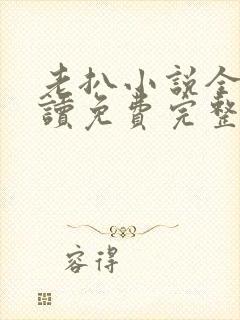 老扒小说全
讀免费完整
容得